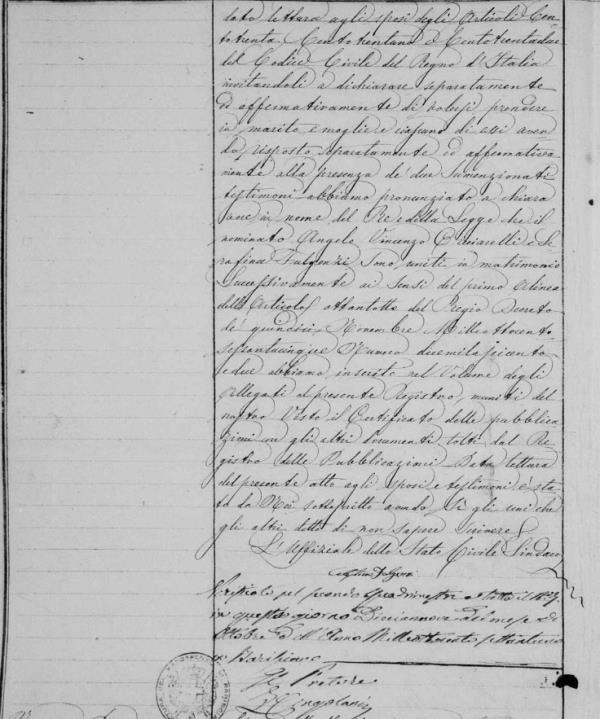 dato lettura agli sposi degli Articoli Cen-
totrenta, Centotrentuno e Centotrentadue
del Codice Civile del Regno d'Italia
invitandoli a dichiarare separatamente
ed affermativamente di volersi prendere
in marito e moglie e ciascuno di essi aven-
do risposto separatamente ed affermativa-
mente alla presenza de due sumenzionati
testimoni abbiamo pronunziato a chiara
voce in nome del Re e della Legge che il
nominato Angelo Vincenzo e Se-
rafina Fulgenzi sono uniti in matrimonio
Successivamente ai sensi del primo alinea
dello Articolo ottantotto del Regio Decreto
de' quindici Novembre Milleottocento
sessantacinque Numero duemilaseicento
e due abbiamo inserito nel Volume degli
allegati al presente Registro, muniti del
nostro Visto il Certificato delle pubblica-
zioni gli altri documenti tolti dal Re-
gistro delle Pubblicazioni Data lettura
del presente atto agli sposi e testimoni è sta-
to da Noi sottoscritto avendo Si gli uni che
gli altri detto di non sapere scrivere
L'Uffiziale dello Stato Civile Sindaco
Verificato pel secondo quadrimestre a tutto il
in questo giorno Diciannove del mese di
Ottobre dell'Anno Milleottocento
in Barisciano
Il Pretore